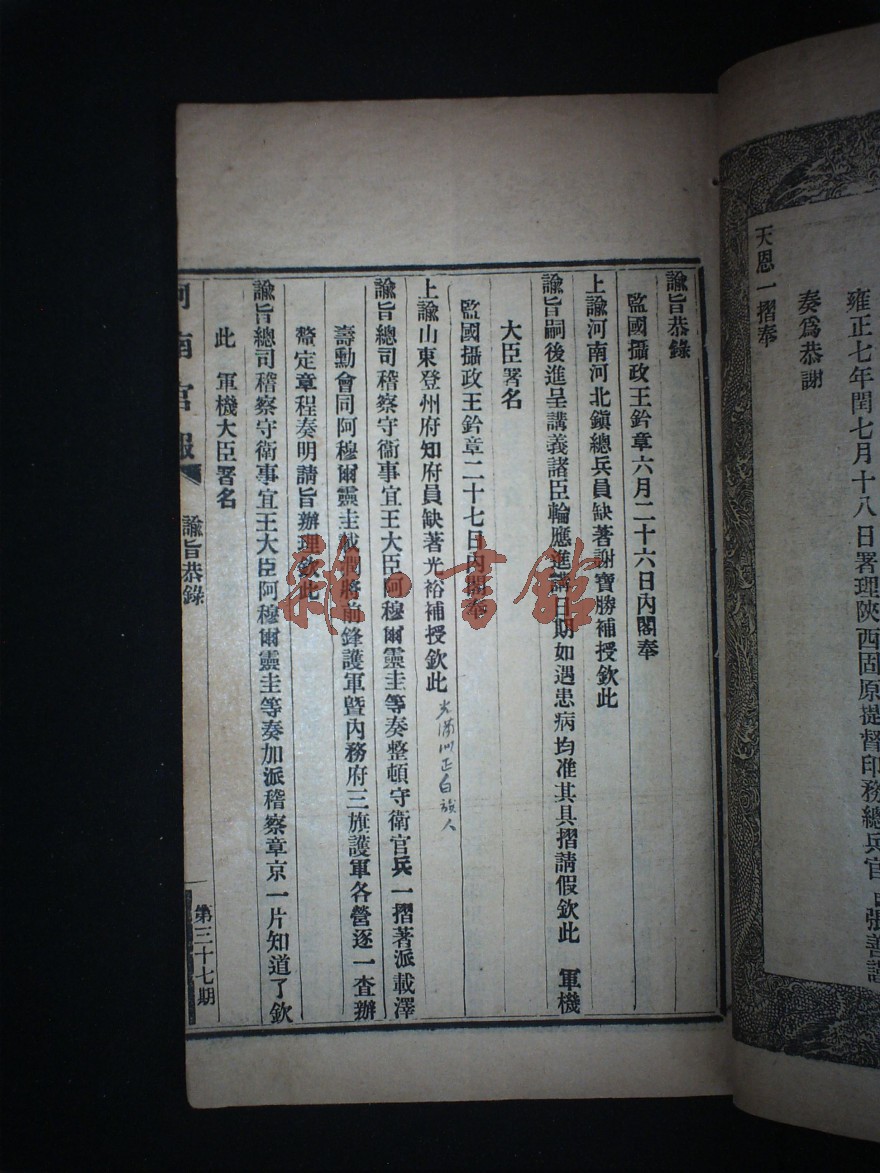 雍正七年閏七月十八日署理陝西固原提督印務總兵官
奏爲恭謝
天恩一摺奉
諭旨恭錄
監國攝政王鈐章六月二十六日內閣奉
上諭河南河北鎮總兵員缺著謝寶勝補授欽此
諭旨嗣後進呈講義諸臣輪應進講日期如遇患病均准其具摺請假欽此 軍機
大臣署名
監國攝政王鈐章二十七日內閣奉
上諭山東登州府知府員缺著光裕補授欽此
滿洲正白旗人
諭旨總司稽察守衞事宜王大臣阿穆爾靈圭等奏整頓守衞官兵一摺著派載澤
壽勳會同阿穆爾靈圭載潤將前鋒護軍暨內務府三旗護軍各營逐一查辦
釐定章程奏明請旨辦理欽此
諭旨總司稽察守衞事宜王大臣阿穆爾靈圭等奏加派稽察章京一片知道了欽
此 軍機大臣署名
河南官報 諭旨恭錄 第三十七期
雜·書館